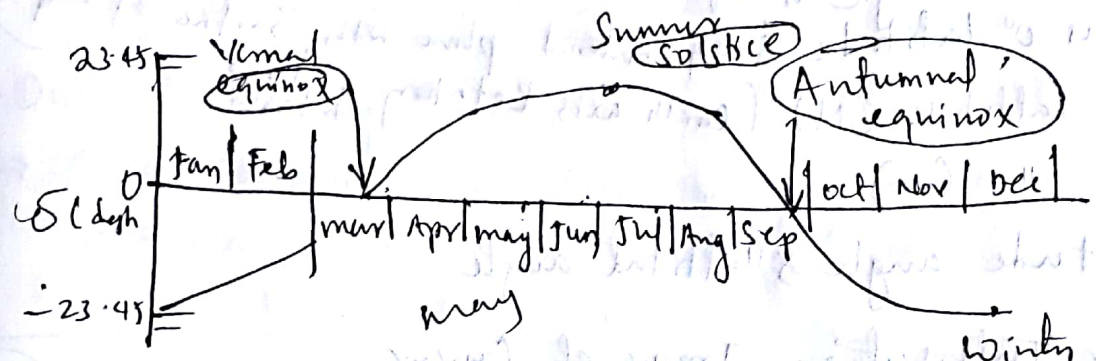 23.45
Vernal
equinox
Summer
Solstice
Autumnal
equinox
Jan Feb
0
δ (degh
mar Apr may Jun Jul Aug Sep
Oct Nov Dec
-23.45
may
Wintr